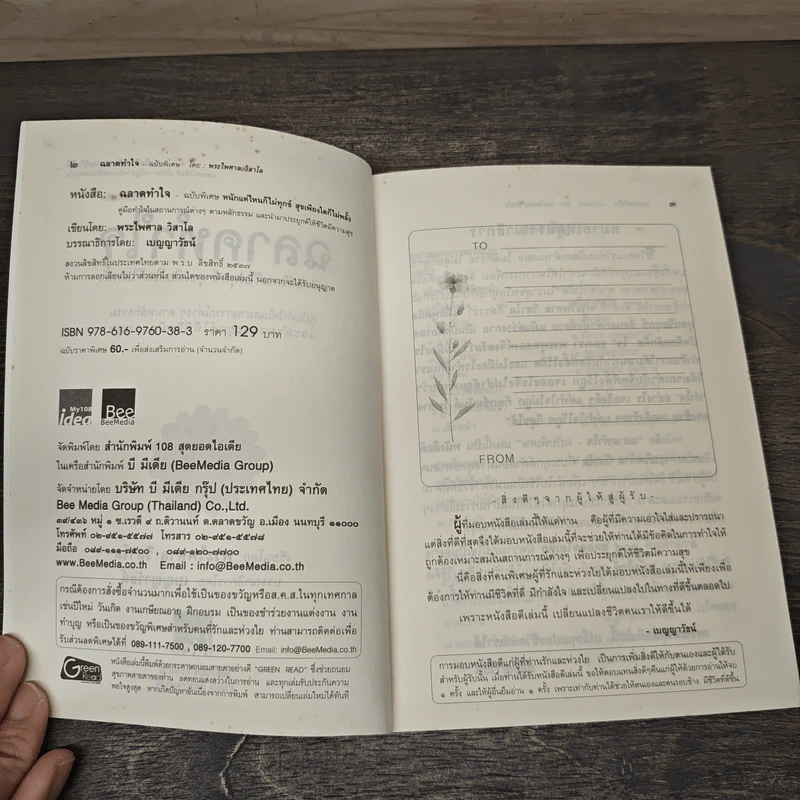 ๒ ฉลาดทำใจ - ฉบับพิเศษ โดย : พระไพศาล วิสาโล
หนังสือ: ฉลาดทำใจ - ฉบับพิเศษ หนักแค่ไหนก็ไม่ทุกข์ สุขเพียงใดก็ไม่พลั้ง
คู่มือทำใจในสถานการณ์ต่างๆ ตามหลักธรรม และนำมาประยุกต์ให้ชีวิตมีความสุข
เขียนโดย: พระไพศาล วิสาโล
บรรณาธิการโดย: เบญญาวัธน์
สงวนลิขสิทธิ์ในประเทศไทยตาม พ.ร.บ. ลิขสิทธิ์ ๒๕๓๗
ห้ามการลอกเลียนไม่ว่าส่วนหนึ่ง ส่วนใดของหนังสือเล่มนี้ นอกจากจะได้รับอนุญาต
ISBN 978-616-9760-38-3 ราคา 129 บาท
ฉบับราคาพิเศษ 60.- เพื่อส่งเสริมการอ่าน (จำนวนจำกัด)
My108 idea
Bee BeeMedia
จัดพิมพ์โดย สำนักพิมพ์ 108 สุดยอดไอเดีย
ในเครือสำนักพิมพ์ บี มีเดีย (BeeMedia Group)
จัดจำหน่ายโดย บริษัท บี มีเดีย กรุ๊ป (ประเทศไทย) จำกัด
Bee Media Group (Thailand) Co.,Ltd.
๓๙/๔๓๖ หมู่ ๑ ซ.เรวดี ๙ ถ.ติวานนท์ ต.ตลาดขวัญ อ.เมือง นนทบุรี ๑๑๐๐๐
โทรศัพท์ ๐๒-๙๕๑-๕๕๘๗ โทรสาร ๐๒-๙๕๑-๕๕๘๘
มือถือ ๐๘๙-๑๑๑-๗๕๐๐ , ๐๘๙-๑๒๐-๗๗๐๐
www.BeeMedia.co.th Email : info@BeeMedia.co.th
กรณีต้องการสั่งซื้อจำนวนมากเพื่อใช้เป็นของขวัญหรือส.ค.ส.ในทุกเทศกาล
เช่นปีใหม่ วันเกิด งานเกษียณอายุ ฝึกอบรม เป็นของชำร่วยงานแต่งงาน งาน
ทำบุญ หรือเป็นของขวัญพิเศษสำหรับคนที่รักและห่วงใย ท่านสามารถติดต่อเพื่อ
รับส่วนลดพิเศษได้ที่ 089-111-7500 , 089-120-7700 Email: info@BeeMedia.co.th
Green Read
หนังสือเล่มนี้พิมพ์ด้วยกระดาษถนอมสายตาอย่างดี "GREEN READ" ซึ่งช่วยถนอม
สุขภาพสายตาของท่าน ลดทอนแสงสว่างในการอ่าน และทุกเล่มรับประกันความ
พอใจสูงสุด หากเกิดปัญหาอันเนื่องจากการพิมพ์ สามารถเปลี่ยนเล่มใหม่ได้ทันที
๓
TO
FROM
- สิ่งดีๆจากผู้ให้สู่ผู้รับ -
ผู้ที่มอบหนังสือเล่มนี้ให้แด่ท่าน คือผู้ที่มีความเอาใจใส่และปรารถนา
แต่สิ่งที่ดีที่สุดจึงได้มอบหนังสือเล่มนี้ที่จะช่วยให้ท่านได้มีข้อคิดในการทำใจให้
ถูกต้องเหมาะสมในสถานการณ์ต่างๆ เพื่อประยุกต์ให้ชีวิตมีความสุข
นี่คือสิ่งที่คนพิเศษผู้ที่รักและห่วงใยได้มอบหนังสือเล่มนี้ให้เพียงเพื่อ
ต้องการให้ท่านมีชีวิตที่ดี มีกำลังใจ และเปลี่ยนแปลงไปในทางที่ดีขึ้นตลอดไป
เพราะหนังสือดีเล่มนี้ เปลี่ยนแปลงชีวิตคนเราให้ดีขึ้นได้
- เบญญาวัธน์
การมอบหนังสือดีแก่ผู้ที่ท่านรักและห่วงใย เป็นการเพิ่มสิ่งดีให้กับตนเองและผู้ได้รับ
สำหรับผู้รับนั้น เมื่อท่านได้รับหนังสือดีเล่มนี้ ขอให้ตอบแทนสิ่งดีๆคืนแก่ผู้ให้ด้วยการอ่านให้จบ
๑ ครั้ง และให้ผู้อื่นยืมอ่าน ๑ ครั้ง เพราะเท่ากับท่านได้ช่วยให้ตนเองและคนรอบข้าง มีชีวิตที่ดีขึ้น